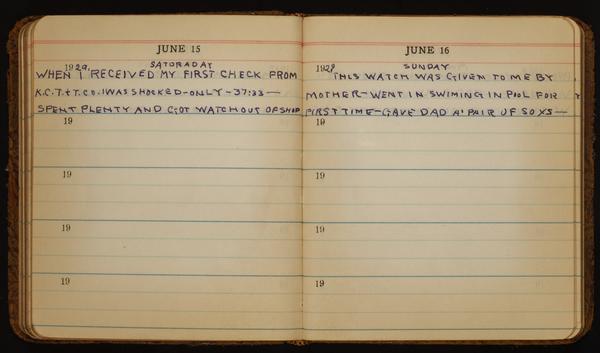 JUNE 15
SATORADAY
1929
WHEN I RECEIVED MY FIRST CHECK FROM
K.C.T.&T.CO. I WAS SHOCKED-ONLY-37:33-
SPENT PLENTY AND GOT WATCH OUT OF SHOP
19
19
19
19
JUNE 16
SUNDAY
1929
THIS WATCH WAS GIVEN TO ME BY
MOTHER-WENT IN SWIMING IN POOL FOR
FIRST TIME-GAVE DAD A' PAIR OF SOXS-
19
19
19
19